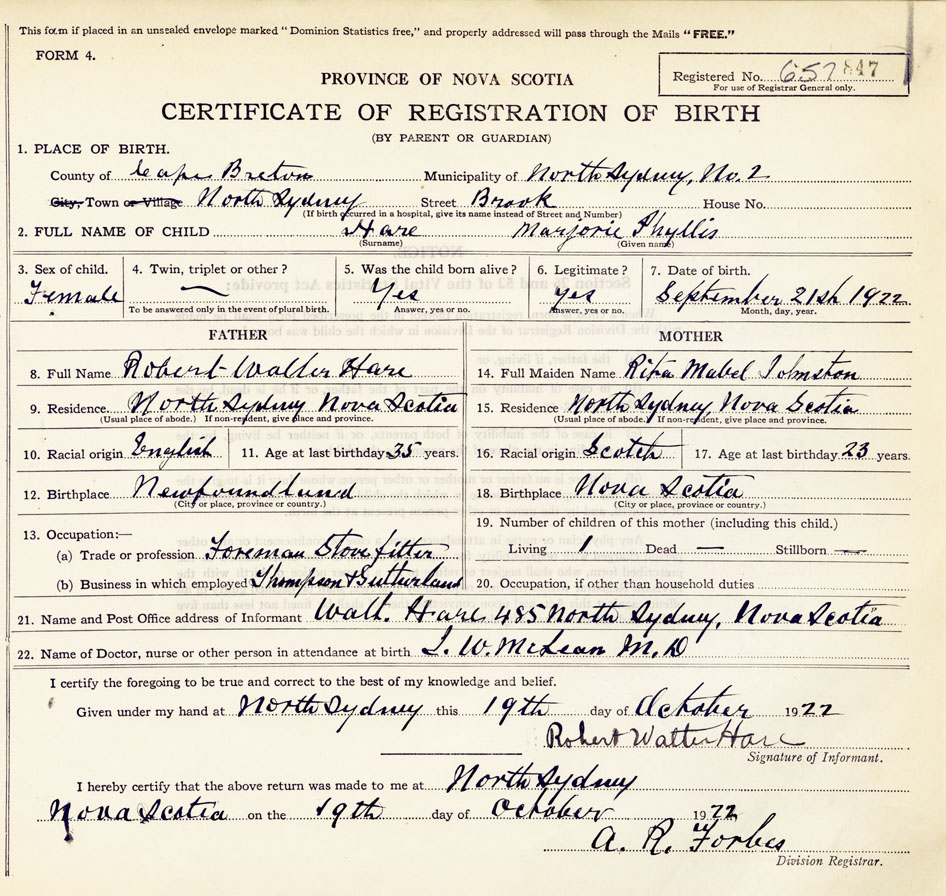 This form if placed in an unsealed envelope marked "Dominion Statistics free," and properly addressed will pass through the Mails "FREE."
FORM 4.
Registered No. 657 847
For use of Registrar General only.
PROVINCE OF NOVA SCOTIA
CERTIFICATE OF REGISTRATION OF BIRTH
(BY PARENT OR GUARDIAN)
1. PLACE OF BIRTH.
County of Cape Breton Municipality of North Sydney, No. 2
City, Town or Village North Sydney Street Brook House No.
(If birth occurred in a hospital, give its name instead of Street and Number)
2. FULL NAME OF CHILD Hare Marjorie Phyllis
(Surname) (Given name)
3. Sex of child. 4. Twin, triplet or other? 5. Was the child born alive? 6. Legitimate? 7. Date of birth.
Female — Yes Yes September 21st 1922
To be answered only in the event of plural birth. Answer, yes or no. Answer, yes or no. Month, day, year.
FATHER MOTHER
8. Full Name Robert Walter Hare 14. Full Maiden Name Rita Mabel Johnston
9. Residence. North Sydney Nova Scotia 15. Residence North Sydney, Nova Scotia
(Usual place of abode.) If non-resident, give place and province. (Usual place of abode.) If non-resident, give place and province.
10. Racial origin English 11. Age at last birthday 35 years. 16. Racial origin Scotch 17. Age at last birthday 23 years.
12. Birthplace Newfoundland 18. Birthplace Nova Scotia
(City or place, province or country.) (City or place, province or country.)
13. Occupation:— 19. Number of children of this mother (including this child.)
(a) Trade or profession Foreman Stove fitter Living 1 Dead — Stillborn —
(b) Business in which employed Thompson & Sutherland 20. Occupation, if other than household duties
21. Name and Post Office address of Informant Walt. Hare 485 North Sydney, Nova Scotia
22. Name of Doctor, nurse or other person in attendance at birth L. W. McLean M. D
I certify the foregoing to be true and correct to the best of my knowledge and belief.
Given under my hand at North Sydney this 19th day of October 1922
Robert Walter Hare
Signature of Informant.
I hereby certify that the above return was made to me at North Sydney
Nova Scotia on the 19th day of October 1922
A. R. Forbes
Division Registrar.